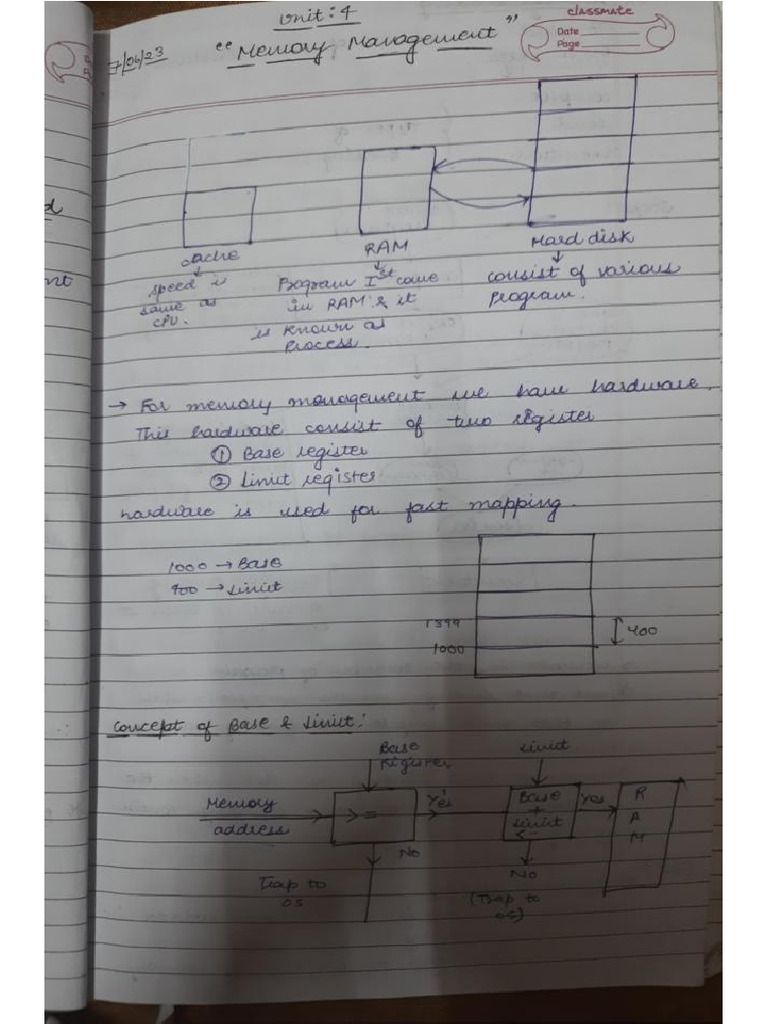 Unit: 4
classmate
Date
Page
7/06/23
"Memory Management"
d
nt
Cache
RAM
Hard disk
speed is
same as
CPU.
Program Ist come
in RAM & it
is known as
Process.
consist of various
program.
→ For memory management we have hardware.
This hardware consist of two register
① Base register
② Limit register
hardware is used for fast mapping.
1000 → Base
400 → Limit
1399
400
1000
Concept of Base & Limit:
Base
Register
Limit
Memory
address
>=
Yes
Base
+
Limit
<-
Yes
R
A
M
No
Trap to
OS
No
(Trap to
OS)